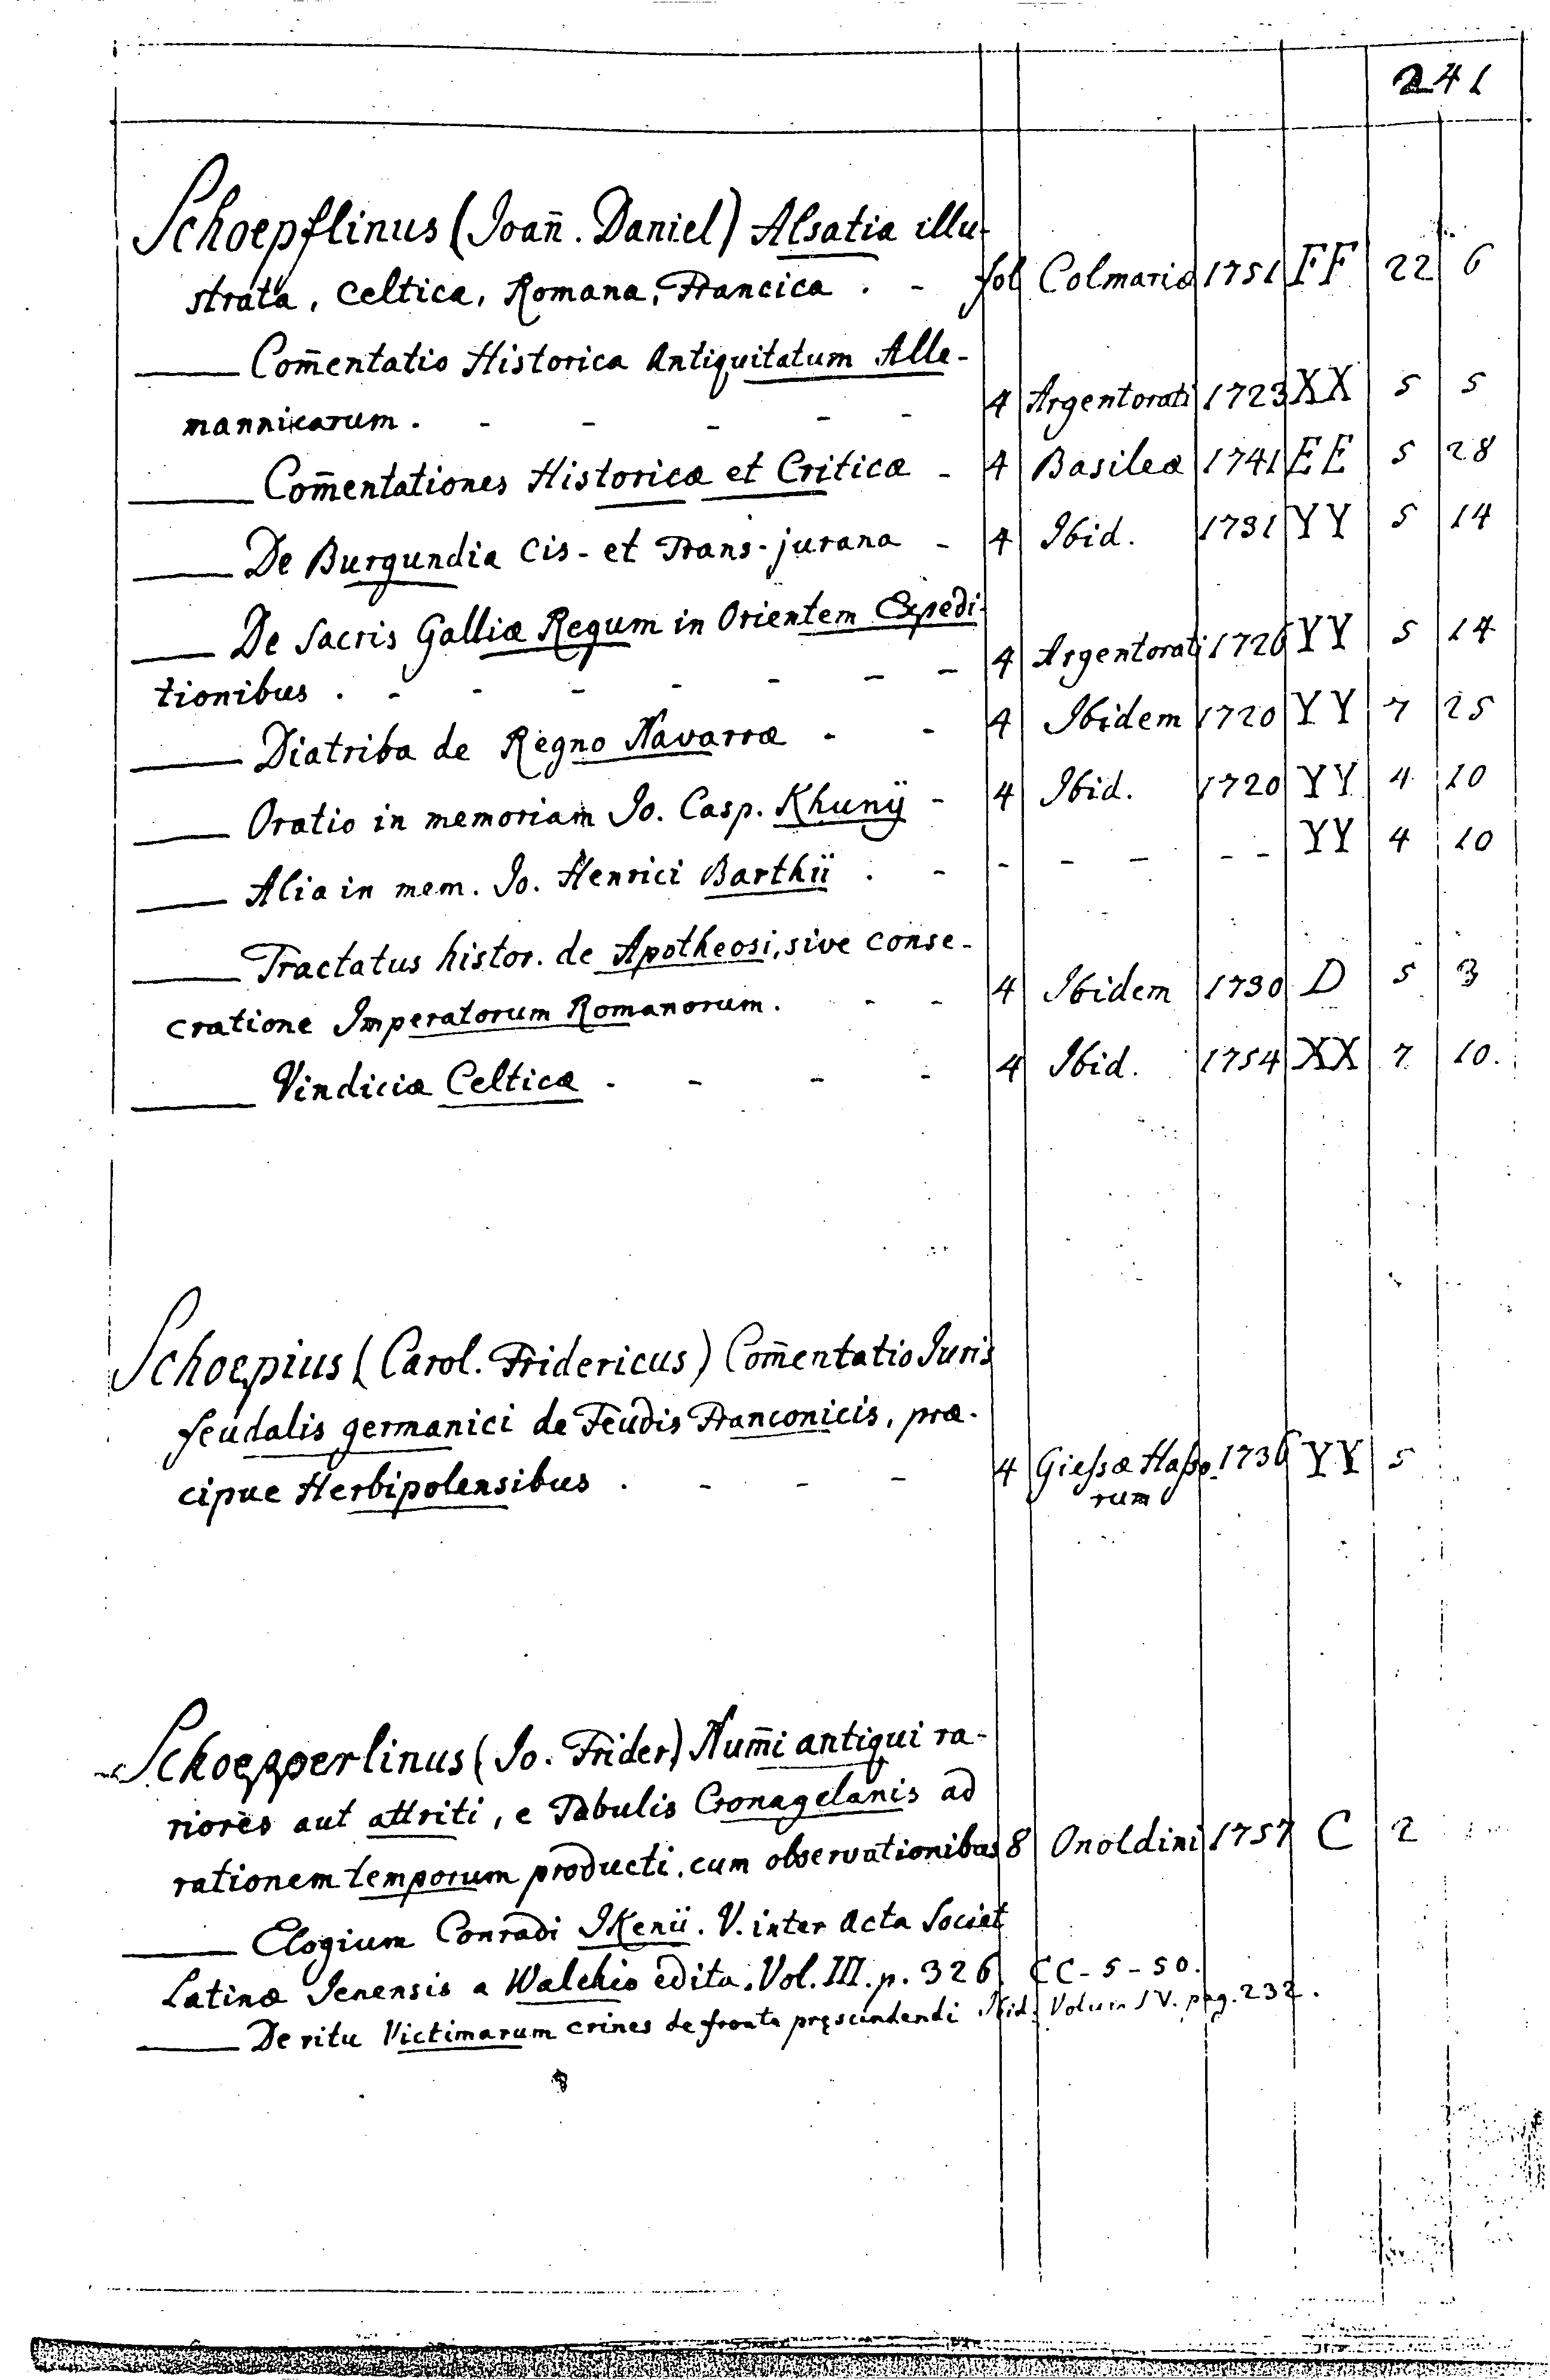 241
Schoepflinus (Joañ. Daniel) Alsatia illu-
strata, Celtica, Romana, Francica . - fol Colmariæ 1751 FF 22 6
—— Com̄entatio Historica Antiquitatum Alle-
mannicarum . - - - - - 4 Argentorati 1723 XX 5 5
—— Com̄entationes Historicæ et Criticæ - 4 Basileæ 1741 EE 5 28
—— De Burgundia Cis- et Trans-jurana - 4 Ibid. 1731 YY 5 14
—— De Sacris Galliæ Regum in Orientem Expedi-
tionibus . - - - - - - - 4 Argentorati 1726 YY 5 14
—— Diatriba de Regno Navarræ - - 4 Ibidem 1720 YY 7 25
—— Oratio in memoriam Jo. Casp. Khunij - 4 Ibid. 1720 YY 4 10
—— Alia in mem. Jo. Henrici Barthii . - - - - - - YY 4 10
—— Tractatus histor. de Apotheosi, sive conse-
cratione Imperatorum Romanorum. - - 4 Ibidem 1730 D 5 3
—— Vindiciæ Celticæ . - - - 4 Ibid. 1754 XX 7 10.
Schoepius (Carol. Fridericus) Com̄entatio Juris
feudalis germanici de Feudis Franconicis, præ-
cipue Herbipolensibus . - - - 4 Giessæ Hasso- 1736 YY 5
rum
Schoepperlinus (Jo. Frider) Num̄i antiqui ra-
riores aut attriti, e Tabulis Cronagelanis ad
rationem temporum producti, cum observationibus 8 Onoldini 1757 C 2
—— Elogium Conradi Ikenii. V. inter Acta Societ
Latinæ Jenensis a Walchio edita. Vol. III. p. 326. CC-5-50.
—— De ritu Victimarum crines de fronte pręscindendi Ibid. Volum IV. pag. 232.